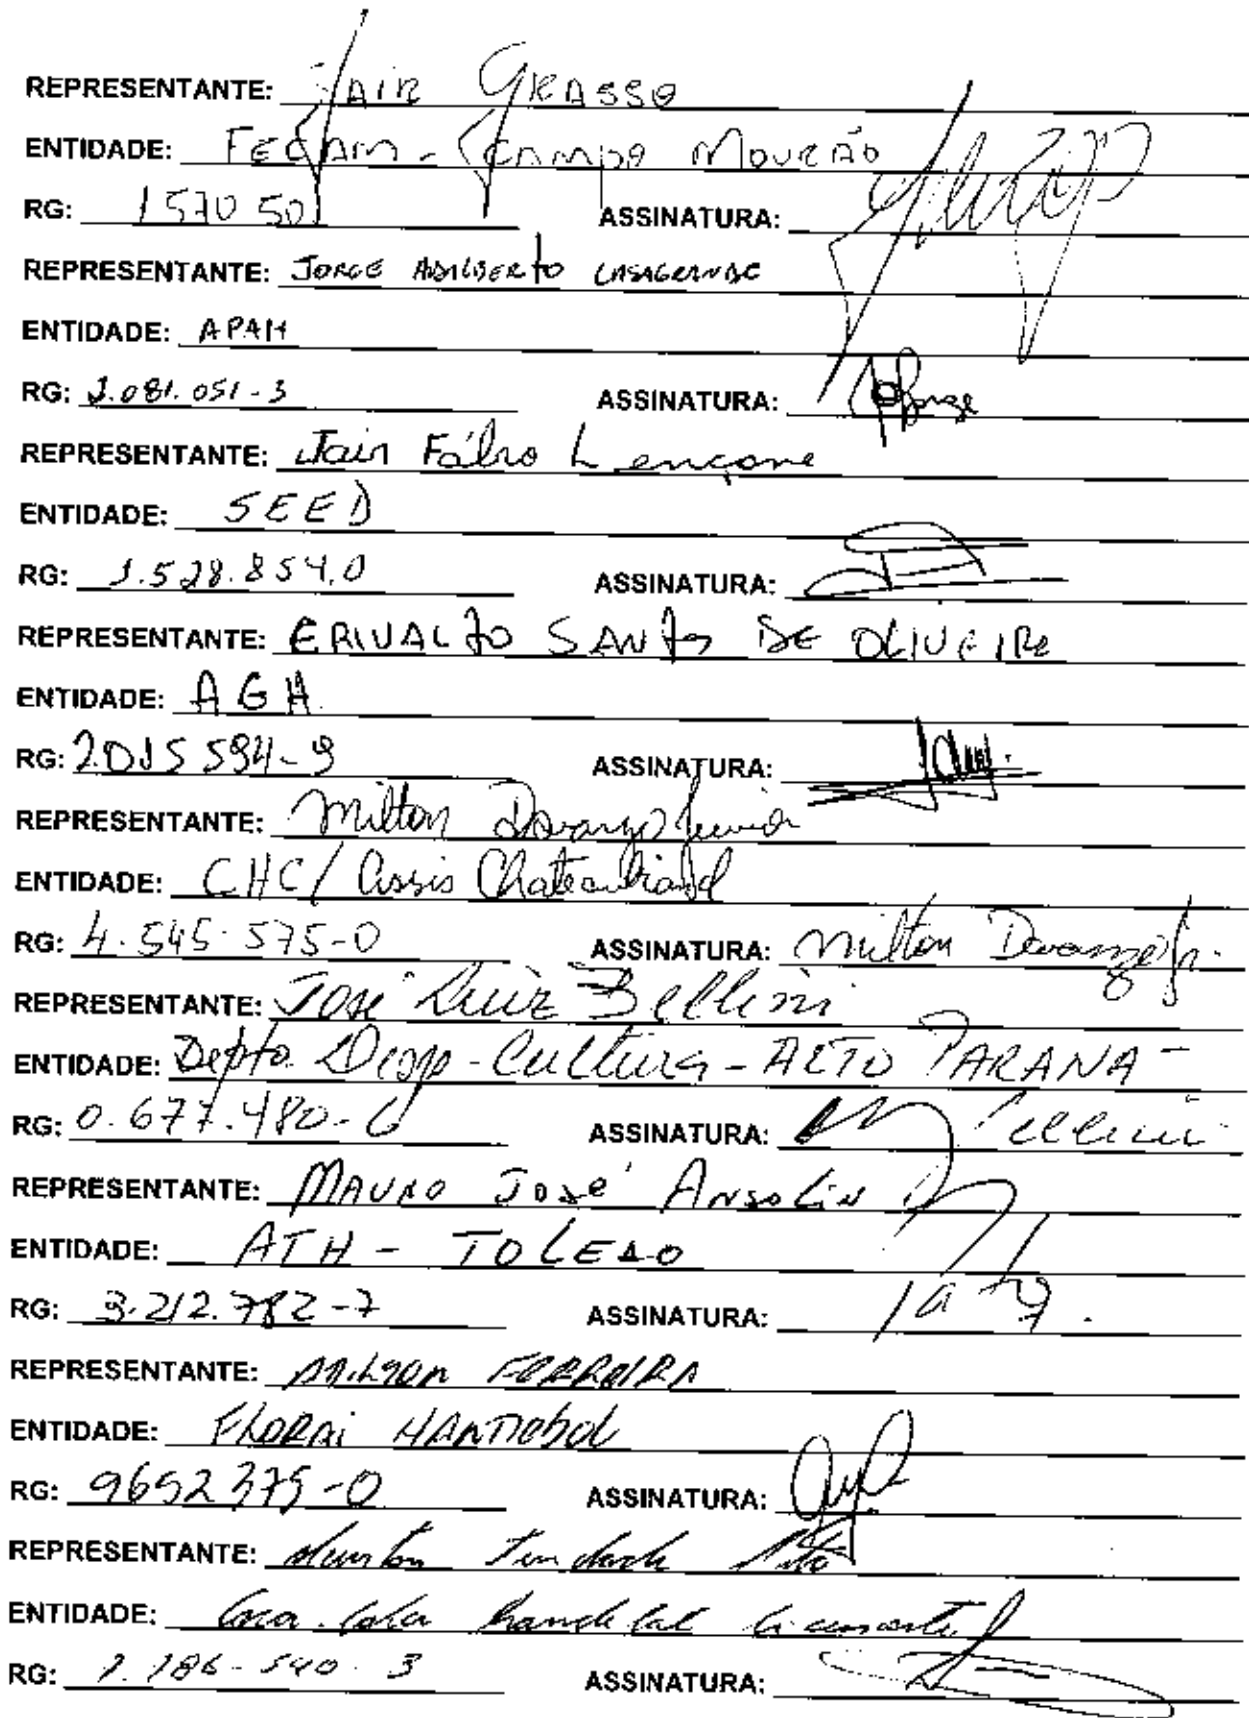 REPRESENTANTE: JAIR GRASSO
ENTIDADE: FECAM - CAMPO MOURÃO
RG: 1570 501 ASSINATURA:
REPRESENTANTE: JORGE ADALBERTO CASAGRANDE
ENTIDADE: APAH
RG: 1.081.051-3 ASSINATURA: Jorge
REPRESENTANTE: Jair Fábio Lençone
ENTIDADE: SEED
RG: 1.528.854.0 ASSINATURA:
REPRESENTANTE: ERIVALTO SANTOS DE OLIVEIRA
ENTIDADE: AGH
RG: 2.015 594-9 ASSINATURA:
REPRESENTANTE: Milton Devanzo Junior
ENTIDADE: CHC/ Assis Chateaubriand
RG: 4.545.575-0 ASSINATURA: Milton Devanzo Jr.
REPRESENTANTE: José Luiz Bellini
ENTIDADE: Depto. Desp - Cultura - ALTO PARANA -
RG: 0.677.480-6 ASSINATURA: Bellini
REPRESENTANTE: MAURO José ANSOLIN
ENTIDADE: ATH - TOLEDO
RG: 3.212.782-7 ASSINATURA:
REPRESENTANTE: FERREIRA
ENTIDADE: FLORAI HANDEBOL
RG: 9652375-0 ASSINATURA:
REPRESENTANTE:
ENTIDADE: Coca-Cola Handebol
RG: 1.186-540-3 ASSINATURA: